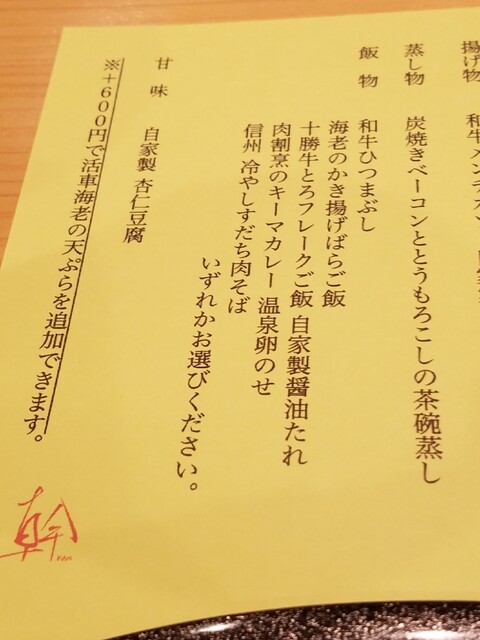 揚げ物 和牛メンチカツ
蒸し物 炭焼きベーコンととうもろこしの茶碗蒸し
飯物 和牛ひつまぶし
海老のかき揚げばらご飯
十勝牛とろフレークご飯 自家製醤油たれ
肉割烹のキーマカレー 温泉卵のせ
信州 冷やしすだち肉そば
いずれかお選びください。
甘味 自家製 杏仁豆腐
※+600円で活車海老の天ぷらを追加できます。
幹
KAN